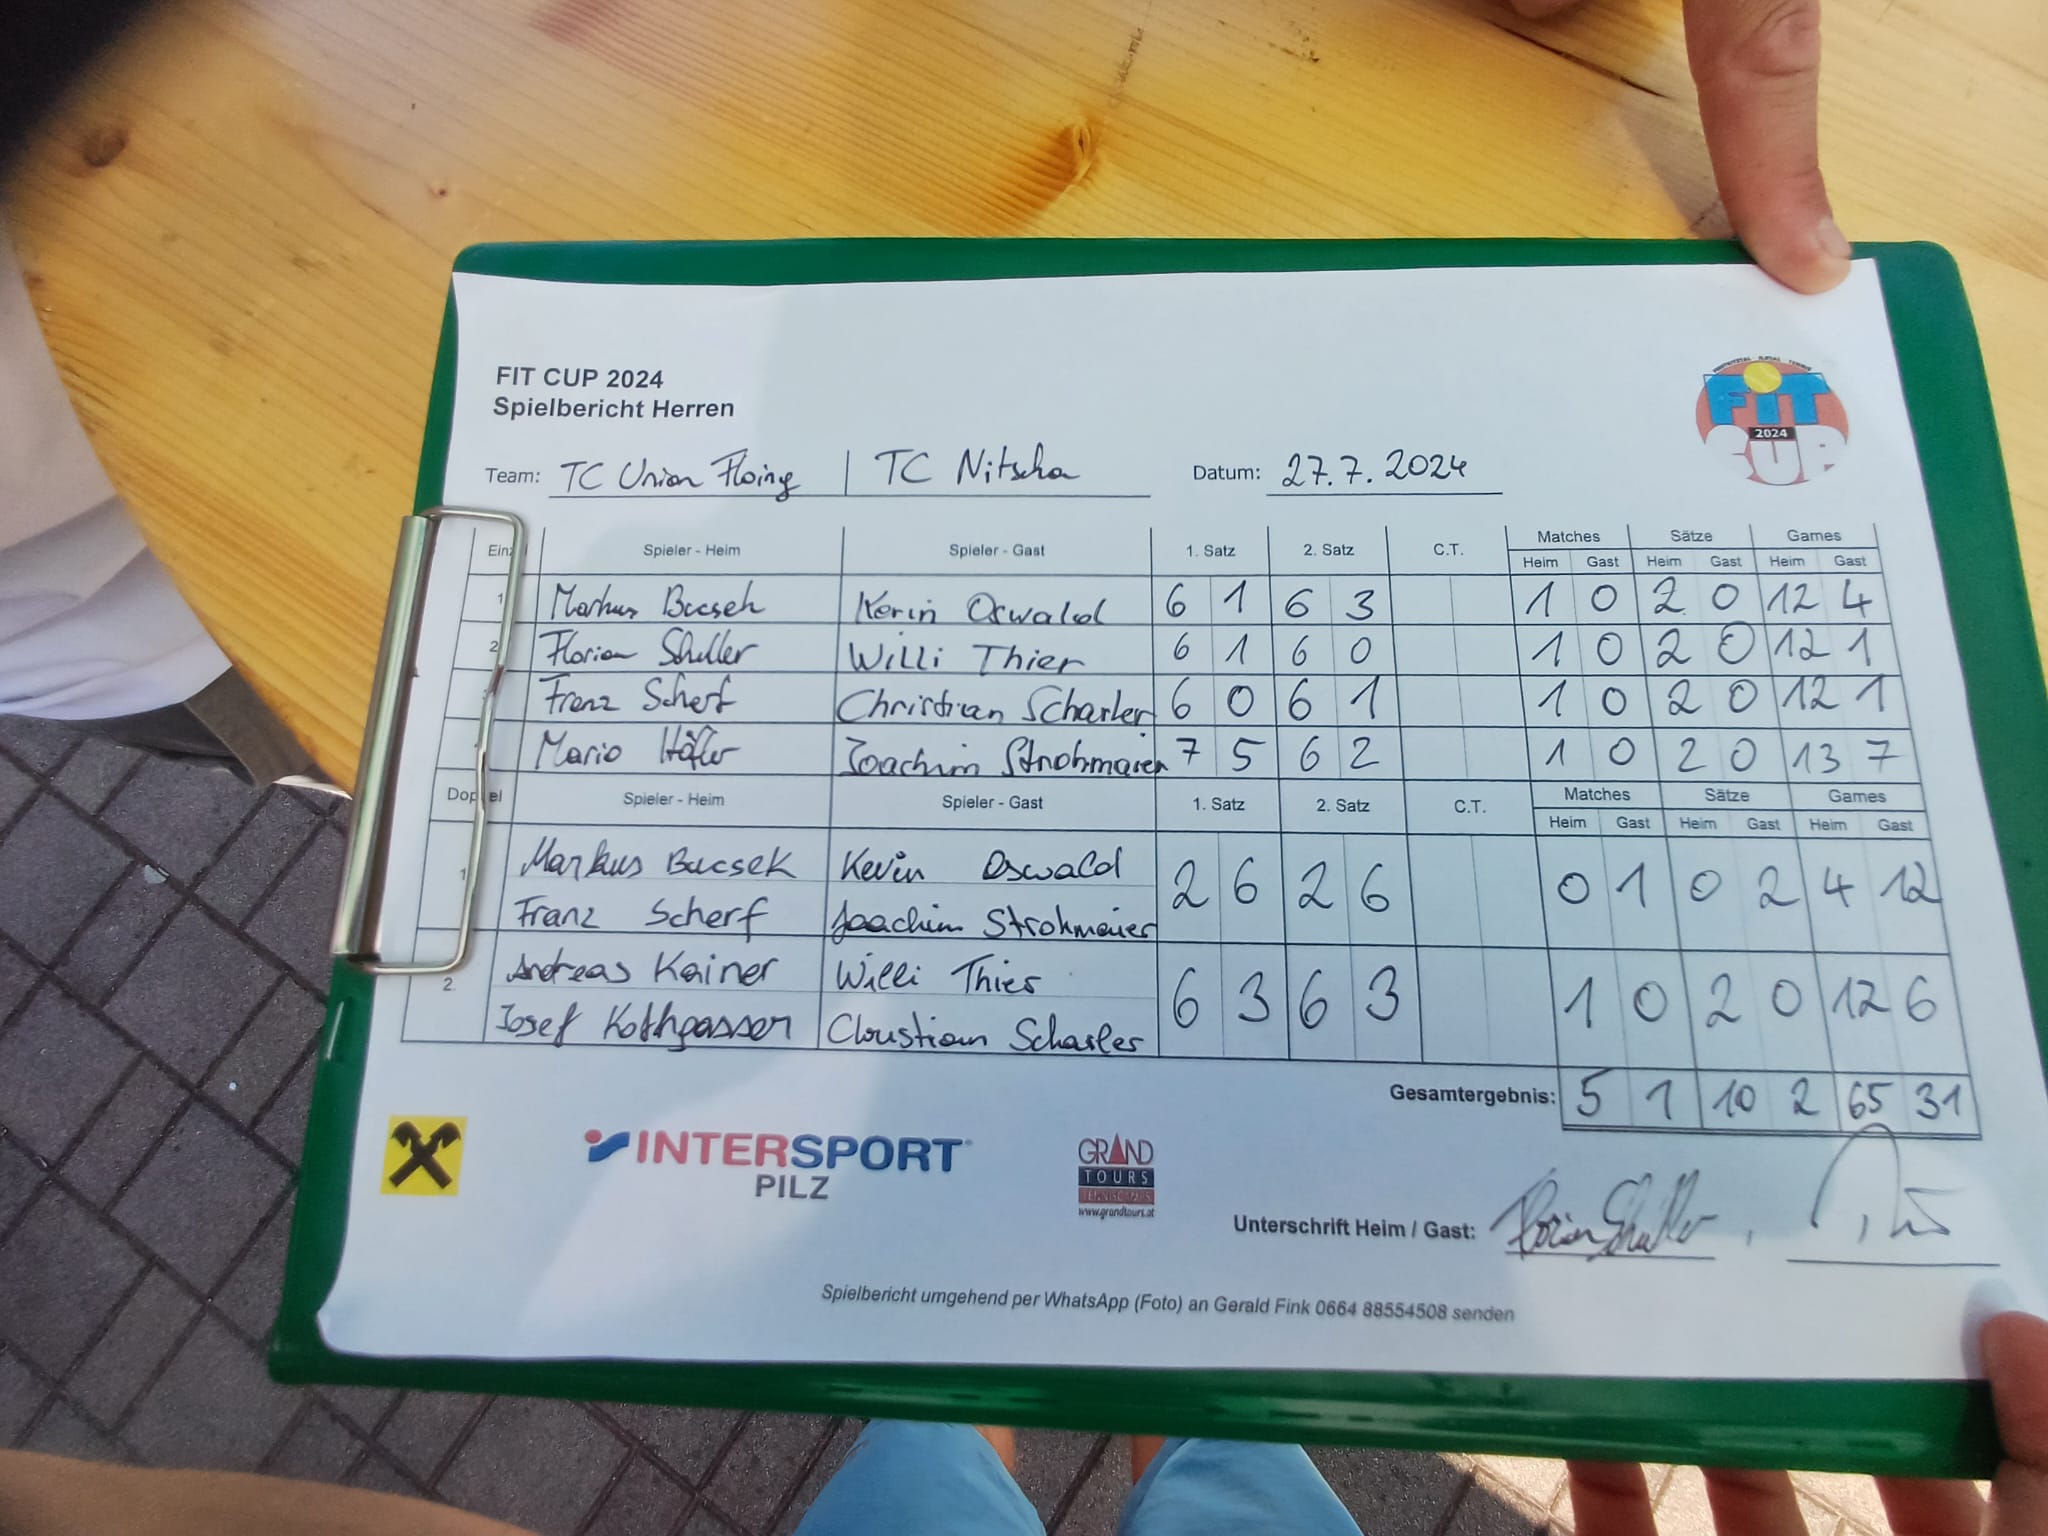 FIT CUP 2024
Spielbericht Herren
FIT
2024
CUP
Team: TC Union Floing | TC Nitscha Datum: 27.7.2024
Einz Spieler - Heim Spieler - Gast 1. Satz 2. Satz C.T. Matches Sätze Games
Heim Gast Heim Gast Heim Gast
1 Markus Bucsek Kevin Oswald 6 1 6 3 1 0 2 0 12 4
2 Florian Schiller Willi Thier 6 1 6 0 1 0 2 0 12 1
Franz Scherf Christian Scharler 6 0 6 1 1 0 2 0 12 1
Mario Höfler Joachim Strohmaier 7 5 6 2 1 0 2 0 13 7
Doppel Spieler - Heim Spieler - Gast 1. Satz 2. Satz C.T. Matches Sätze Games
Heim Gast Heim Gast Heim Gast
1 Markus Bucsek Kevin Oswald 2 6 2 6 0 1 0 2 4 12
Franz Scherf Joachim Strohmaier
2. Andreas Kainer Willi Thier 6 3 6 3 1 0 2 0 12 6
Josef Kothgasser Christian Scharler
Gesamtergebnis: 5 1 10 2 65 31
INTERSPORT
PILZ
GRAND
TOURS
www.grandtours.at
Unterschrift Heim / Gast:
Spielbericht umgehend per WhatsApp (Foto) an Gerald Fink 0664 88554508 senden